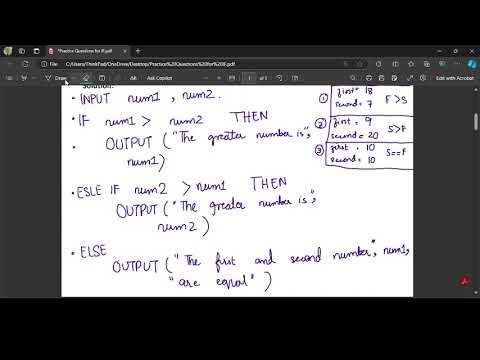 *Practice Questions for IF.pdf
C:/Users/ThinkPad/OneDrive/Desktop/Practice%20Questions%20for%20IF.pdf
Draw
Ask Copilot
1
of 1
Edit with Acrobat
Solution:
• INPUT num1 , num2.
• IF num1 > num2 THEN
• OUTPUT ("The greater number is",
num1)
• ESLE IF num2 > num1 THEN
OUTPUT ("The greater number is",
num2)
• ELSE
OUTPUT ("The first and second number", num1,
"are equal" )
1 first = 18
second = 7 F>S
2 first = 9
second = 20 S>F
3 first = 10
second = 10 S==F